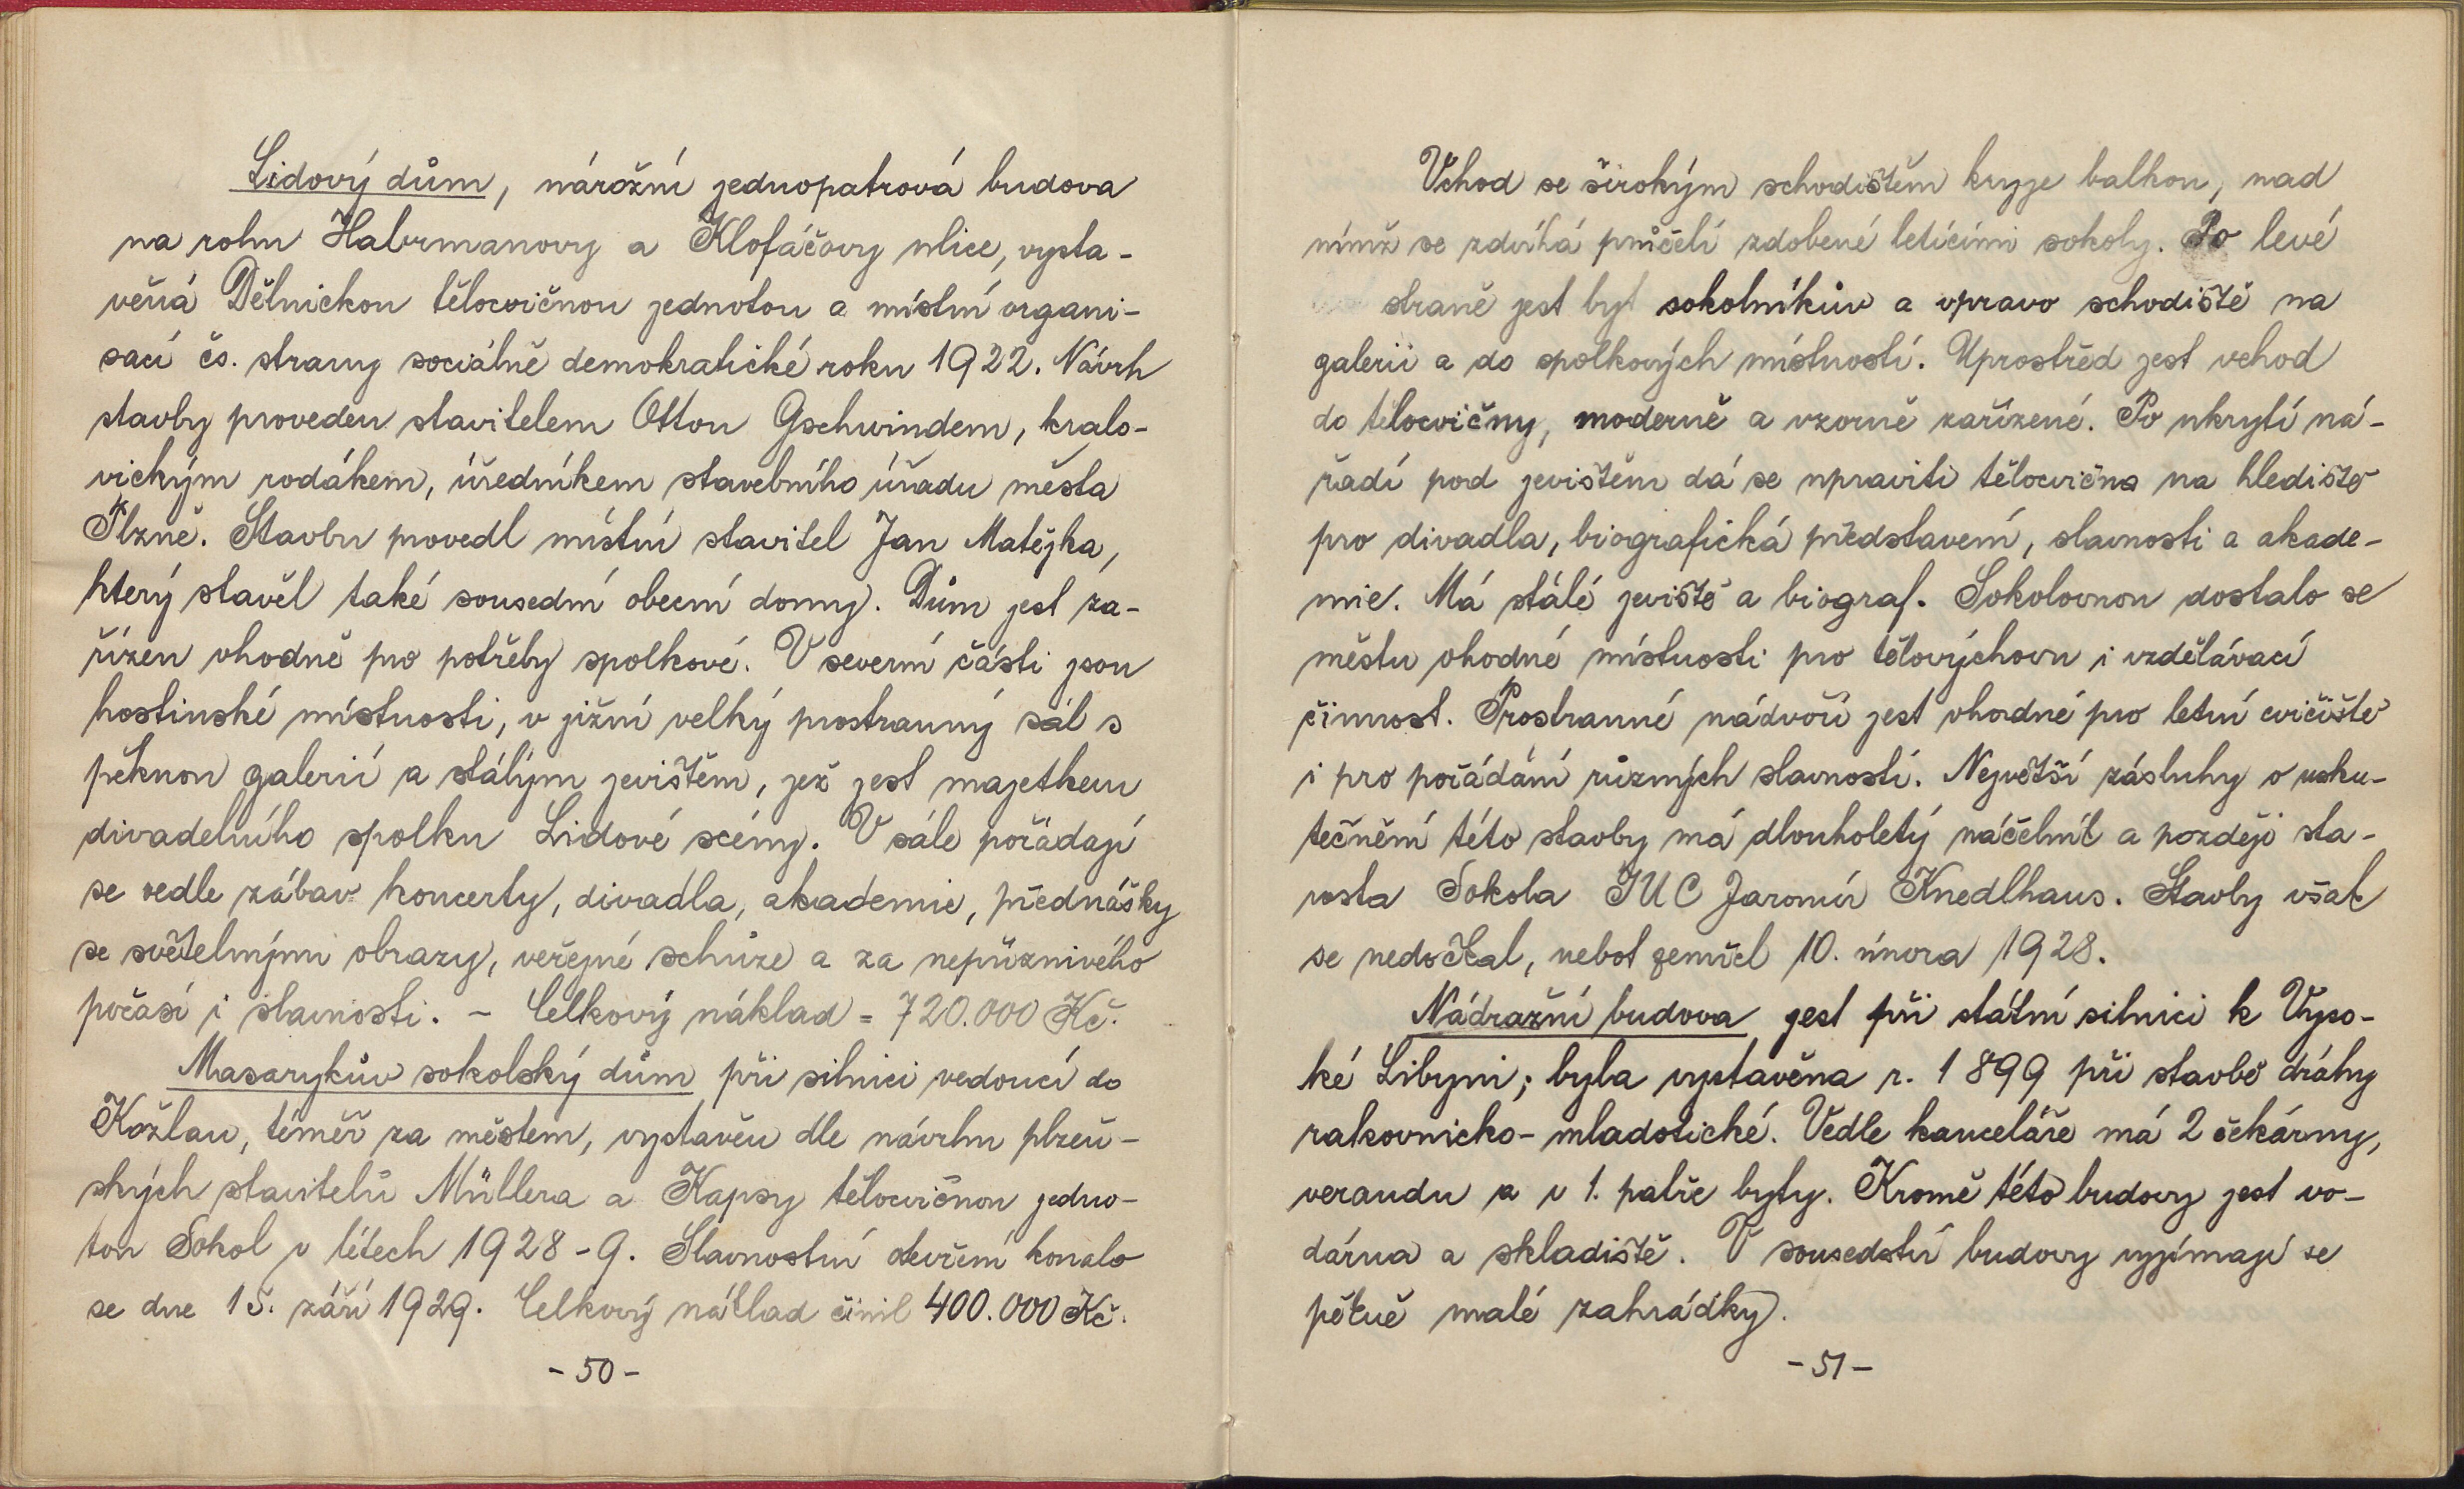 Lidový dům, nárožní jednopatrová budova
na rohu Habrmanovy a Klofáčovy ulice, vysta-
věná Dělnickou tělocvičnou jednotou a místní organi-
sací čs. strany sociálně demokratické roku 1922. Návrh
stavby proveden stavitelem Ottou Gschwindem, kralo-
vickým rodákem, úředníkem stavebního úřadu města
Plzně. Stavbu provedl místní stavitel Jan Matějka,
který stavěl také sousední obecní domy. Dům jest za-
řízen vhodně pro potřeby spolkové. V severní části jsou
hostinské místnosti, v jižní velký prostranný sál s
pěknou galerií a stálým jevištěm, jež jest majetkem
divadelního spolku Lidové scény. V sále pořádají
se vedle zábav koncerty, divadla, akademie, přednášky
se světelnými obrazy, veřejné schůze a za nepříznivého
počasí i slavnosti. - Celkový náklad = 720.000 Kč.
Masarykův sokolský dům při silnici vedoucí do
Kožlan, téměř za městem, vystavěn dle návrhu plzeň-
ských stavitelů Müllera a Kapsy tělocvičnou jedno-
tou Sokol v létech 1928-9. Slavnostní otevření konalo
se dne 15. září 1929. Celkový náklad činil 400.000 Kč.
- 50 -
Vchod se širokým schodištěm kryje balkon, nad
nímž se zdvihá průčelí zdobené letícími sokoly. Po levé
straně jest byt sokolníkův a vpravo schodiště na
galerii a do spolkových místností. Uprostřed jest vchod
do tělocvičny, moderně a vzorně zařízené. Po ukrytí ná-
řadí pod jevištěm dá se upraviti tělocvična na hlediště
pro divadla, biografická představení, slavnosti a akade-
mie. Má stálé jeviště a biograf. Sokolovnou dostalo se
městu vhodné místnosti pro tělovýchovu i vzdělávací
činnost. Prostranné nádvoří jest vhodné pro letní cvičiště
i pro pořádání různých slavností. Největší zásluhy o usku-
tečnění této stavby má dlouholetý náčelník a později sta-
rosta Sokola JUC Jaromír Knedlhaus. Stavby však
se nedočkal, nebot zemřel 10. února 1928.
Nádražní budova jest při státní silnici k Vyso-
ké Libyni; byla vystavěna r. 1899 při stavbě dráhy
rakovnicko-mladotické. Vedle kanceláře má 2 čekárny,
verandu a v 1. patře byty. Kromě této budovy jest vo-
dárna a skladiště. V sousedství budovy vyjímají se
pěkně malé zahrádky.
- 51 -